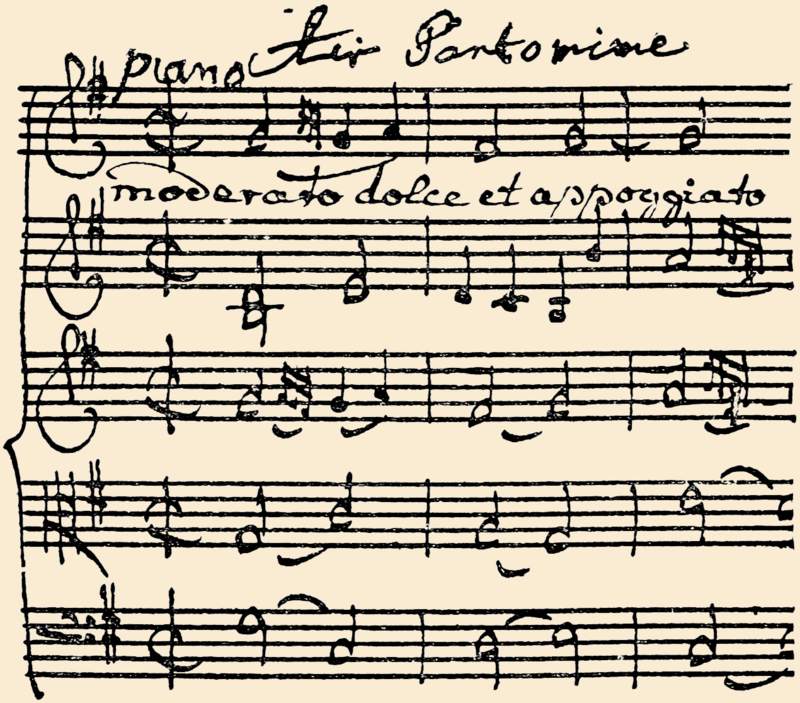 Air Pantomime
piano
moderato dolce et appoggiato